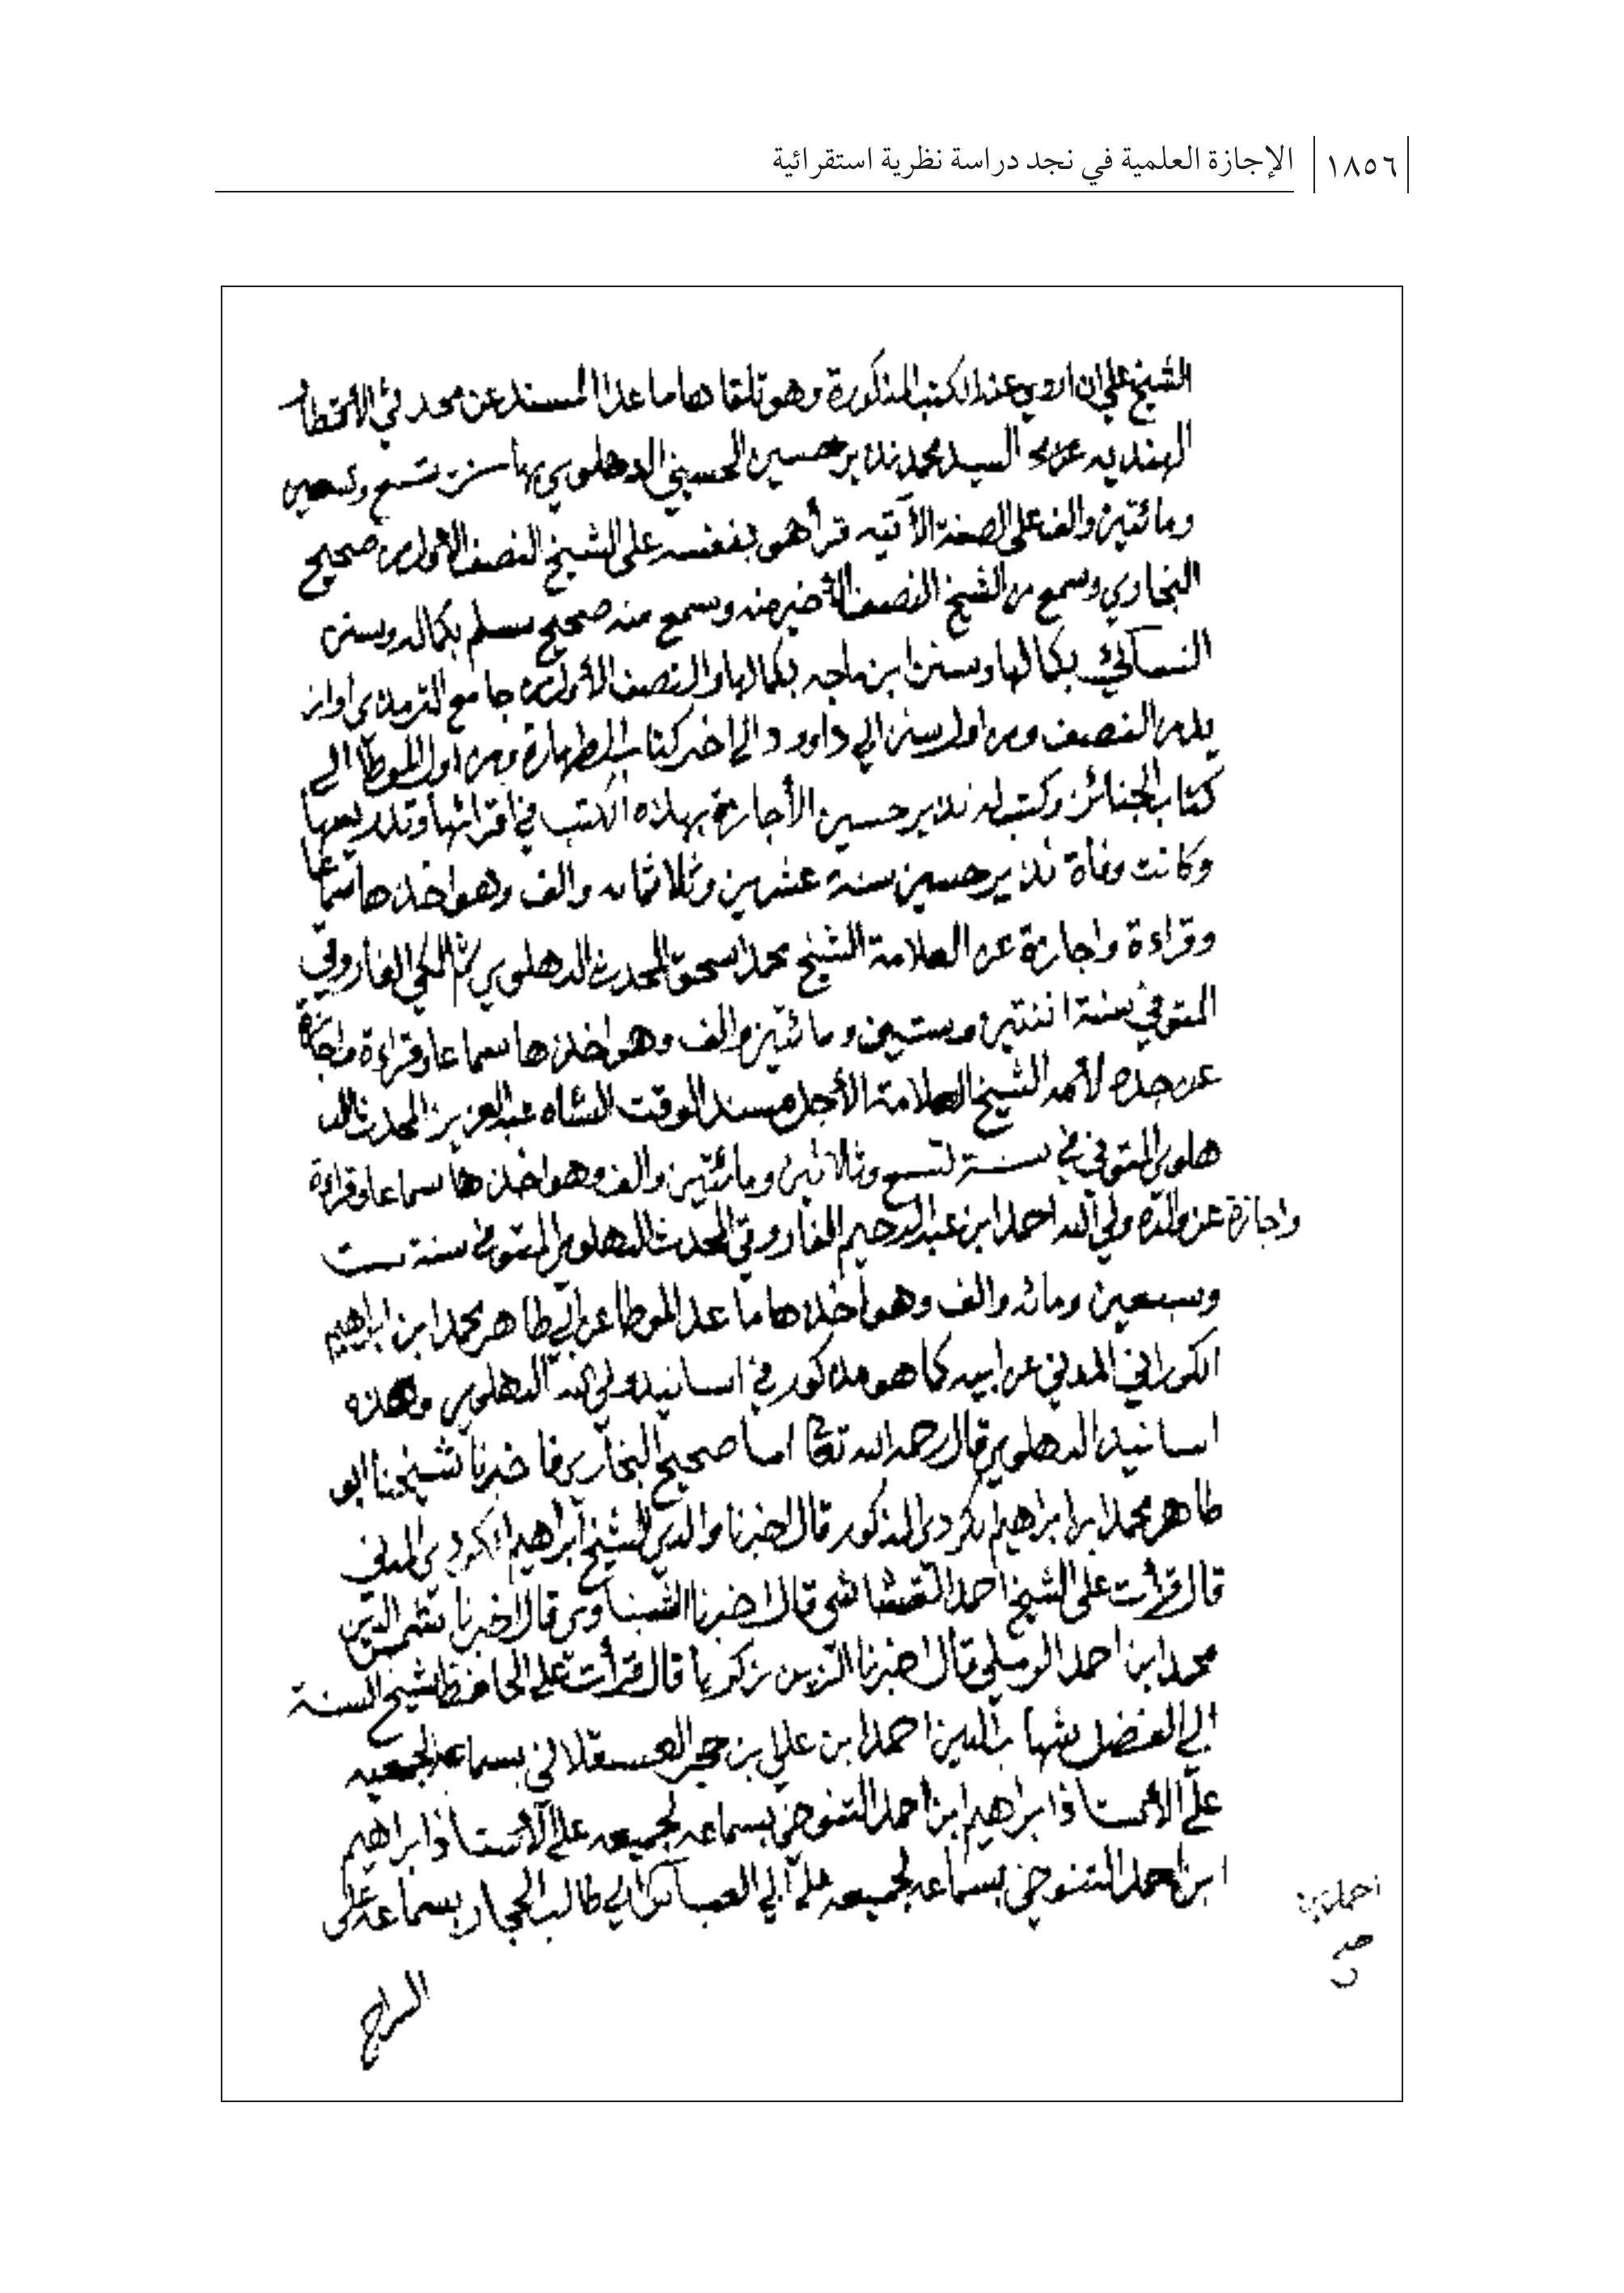 ١٨٥٦ الإجازة العلمية في نجد دراسة نظرية استقرائية
الشيخ علي ان اروي عنه الكتب المذكورة وهو تلقاها ما عدا المسند عن محدثي الاقطار
الهنديه السيد محمد نذير حسين الحسيني الدهلوي بها سنة تسع وتسعين
ومائتين والف على الصفة الآتيه قرأ هو بنفسه على الشيخ النصف الأول من صحيح
البخاري وسمع من الشيخ النصف الأخير منه وسمع منه صحيح مسلم بكماله وسنن
النسائي بكمالها وسنن ابن ماجه بكمالها والنصف الأول من جامع الترمذي او از
يد من النصف ومن اول سنن ابي داود الى اخر كتاب الطهارة ومن اول الموطأ الى
كتاب الجنائز وكتب له نذير حسين الأجازة بهذه الكتب في اقرائها وتدريسها
وكانت وفاة نذير حسين سنة عشرين وثلاثمائه والف وهو اخذها سماعا
وقراءة واجازة عن العلامة الشيخ محمد اسحق المحدث الدهلوي ثم المكي الفاروقي
المتوفي سنة اثنتين وستين ومائتين والف وهو اخذها سماعا وقراءة واجازة
عن جده لأمه الشيخ العلامة الأجل مسند الوقت الشاه عبد العزيز المحدث الد
هلوي المتوفي في سنة تسع وثلاثين ومائتين والف وهو اخذها سماعا وقراءة
واجازة عن والده ولي الله احمد ابن عبد الرحيم الفاروقي المحدث الدهلوي المتوفى سنة ست
وسبعين ومائه والف وهو أخذها ما عدا الموطا عن ابي طاهر محمد ابن ابراهيم
الكوراني المدني عن ابيه كما هو مذكور في اسانيد ولي الله الدهلوي وهذه
اسانيد الدهلوي قال رحمه الله تعالى اما صحيح البخاري فاخبرنا شيخنا ابو
طاهر محمد ابن ابراهيم الكردي المذكور قال اخبرنا والدي الشيخ ابراهيم الكردي المدني
قال قرأت على الشيخ احمد القشاشي قال اخبرنا الشناوي قال اخبرنا شمس الدين
محمد ابن احمد الرملي قال اخبرنا الزين زكريا قال قرأت على الحافظ شيخ السنة
ابي الفضل شهاب الدين احمد ابن علي بن حجر العسقلاني بسماعه لجميعه
على الأستاذ ابراهيم ابن أحمد التنوخي بسماعه لجميعه على الأستاذ ابراهيم
ابن احمد التنوخي بسماعه لجميعه على أبي العباس ابي طالب الحجار بسماعه على
احمد بن
صح
السراج